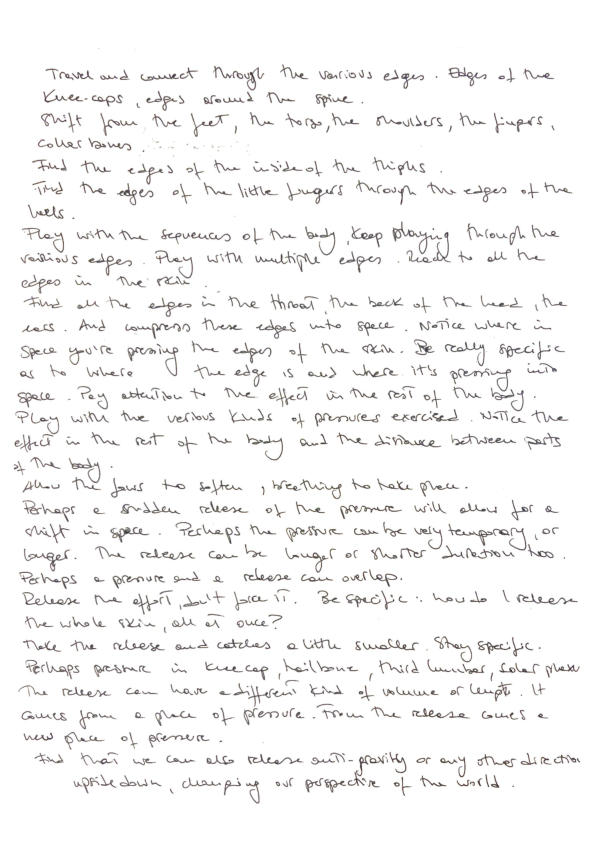 Travel and connect through the various edges. Edges of the
knee-caps, edges around the spine.
Shift from the feet, the torso, the shoulders, the fingers,
collar bones.
Find the edges of the inside of the thighs.
Find the edges of the little fingers through the edges of the
heels.
Play with the sequences of the body, keep playing through the
various edges. Play with multiple edges. Reach to all the
edges in the skin.
Find all the edges in the throat, the back of the head, the
ears. And compress these edges into space. Notice where in
space you're pressing the edges of the skin. Be really specific
as to where the edge is and where it's pressing into
space. Pay attention to the effect in the rest of the body.
Play with the various kinds of pressures exercised. Notice the
effect in the rest of the body and the distance between parts
of the body.
Allow the jaws to soften, breathing to take place.
Perhaps a sudden release of the pressure will allow for a
shift in space. Perhaps the pressure can be very temporary, or
longer. The release can be longer or shorter duration too.
Perhaps a pressure and a release can overlap.
Release the effort, don't force it. Be specific: how do I release
the whole skin, all at once?
Make the release and catches a little smaller. Stay specific.
Perhaps pressure in knee cap, tailbone, third lumbar, solar
The release can have a different kind of volume or length. It
comes from a place of pressure. From the release comes a
new place of pressure.
Find that we can also release anti-gravity or any other direction
upside down, changing our perspective of the world.